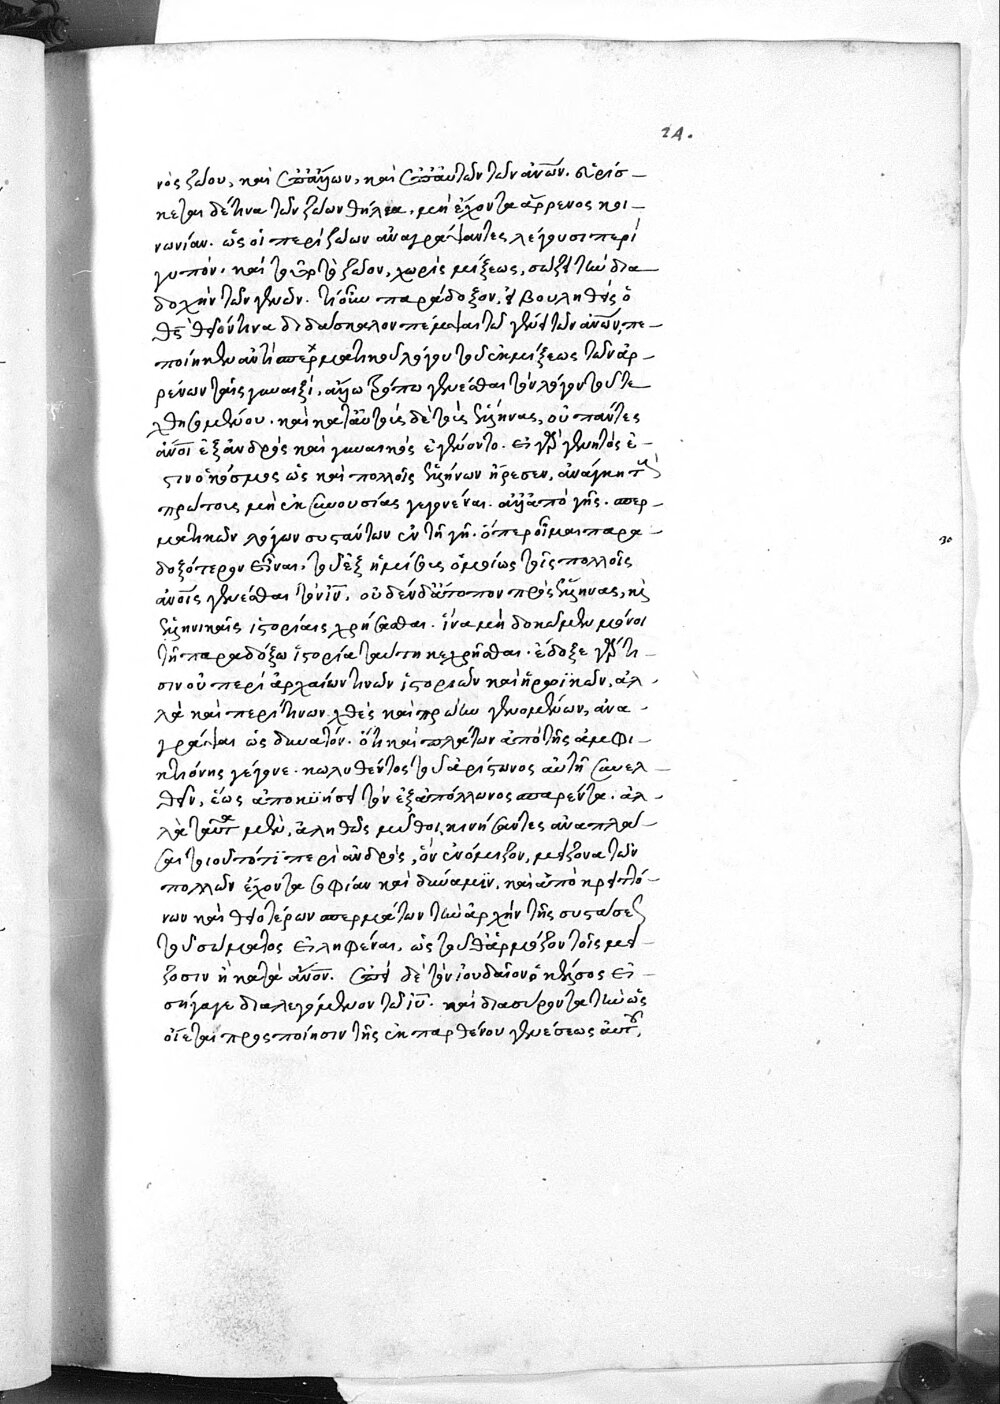 νὸς ζώου, καὶ ἐπὶ ἄλλων, καὶ ἐπὶ αὐτῶν τῶν ἀνων. εὑρίσ-
κεται δέ τινα τῶν ζώων θήλεα, μὴ ἔχοντα ἄρρενος κοι-
νωνίαν. ὡς οἱ περὶ ζώων ἀναγράψαντες λέγουσι περὶ
γυπῶν. καὶ τοῦτο τὸ ζῶον, χωρὶς μίξεως, σώζει τὴν δια-
δοχὴν τῶν γενῶν. τί οὖν παράδοξον, εἰ βουληθεὶς ὁ
θς θεῖόν τινα διδάσκαλον πέμψαι τῶ γένει τῶν ἀνων, πε-
ποίηκεν ἀντὶ σπερματικοῦ λόγου τοῦ ἐκ μίξεως τῶν ἀρ-
ρένων ταῖς γυναιξί, ἄλλω τρόπω γενέσθαι τὸν λόγον τοῦ τε-
χθησομένου. καὶ κατὰ αὐτοὺς δὲ τοὺς ἕλληνας, οὐ πάντες
ἄνοι ἐξ ἀνδρὸς καὶ γυναικὸς ἐγένοντο. εἰ γὰρ γενητός ἐ-
στιν ὁ κόσμος ὡς καὶ πολλοῖς ἑλλήνων ἤρεσεν, ἀνάγκη τοὺς
πρώτους μὴ ἐκ συνουσίας γεγονέναι. ἀλλὰ ἀπὸ γῆς. σπερ-
ματικῶν λόγων συστάντων ἐν τῆ γῆ. ὅπερ οἶμαι παρα-
δοξότερον εἶναι, τοῦ ἐξ ἡμίσους ὁμοίως τοῖς πολλοῖς
ἀνοις γενέσθαι τὸν ιν. οὐδὲν δὲ ἄτοπον πρὸς ἕλληνας, καὶ
ἑλληνικαῖς ἱστορίαις χρήσασθαι. ἵνα μὴ δοκῶμεν μόνοι
τῆ παραδόξω ἱστορία ταύτη κεχρῆσθαι. ἔδοξε γάρ τι-
σιν οὐ περὶ ἀρχαίων τινῶν ἱστοριῶν καὶ ἡρωϊκῶν, ἀλ-
λὰ καὶ περί τινων χθὲς καὶ πρώην γενομένων, ἀνα-
γράψαι ὡς δυνατόν. ὅτι καὶ πλάτων ἀπὸ τῆς ἀμφι-
κτιόνης γέγονε. κωλυθέντος τοῦ ἀρίστωνος αὐτῆ συνελ-
θεῖν, ἕως ἀποκυήσει τὸν ἐξ ἀπόλλωνος σπαρέντα. ἀλ-
λὰ ταῦτα μὲν, ἀληθῶς μῦθοι, κινήσαντες ἀναπλάσ-
σαι τοιοῦτό τι περὶ ἀνδρὸς, ὃν ἐνόμιζον, μείζονα τῶν
πολλῶν ἔχοντα σοφίαν καὶ δύναμιν, καὶ ἀπὸ κρειττό-
νων καὶ θειοτέρων σπερμάτων τὴν ἀρχὴν τῆς συστάσεως
τοῦ σώματος εἰληφέναι, ὡς τοῦθ' ἁρμόζον τοῖς μεί-
ζοσιν ἢ κατὰ ἄνον. ἐπεὶ δὲ τὸν ἰουδαῖον ὁ κέλσος εἰ-
σήγαγε διαλεγόμενον τῶ ιυ. καὶ διασύροντα τὴν ὡς
οἴεται προςποίησιν τῆς ἐκ παρθένου γενέσεως αὐτοῦ,
24.
30